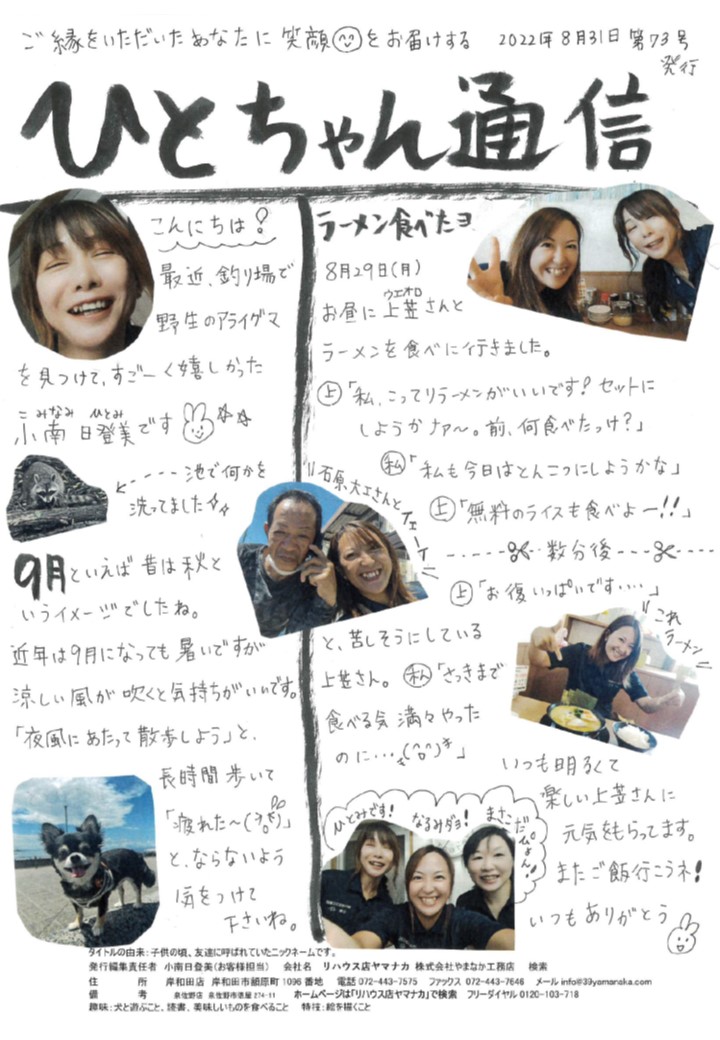 ご縁をいただいたあなたに 笑顔をお届けする 2022年8月31日 第73号
発行
ひとちゃん通信
こんにちは!
最近、釣り場で
野生のアライグマ
を見つけて、すごーく嬉しかった
こみなみ ひとみ
小南 日登美です
池で何かを
洗ってました
9月といえば昔は秋と
いうイメージでしたね。
近年は9月になっても暑いですが
涼しい風が吹くと気持ちがいいです。
「夜風にあたって散歩しよう」と、
長時間歩いて
「疲れた〜」
と、ならないよう
気をつけて
下さいね。
ラーメン食べたヨ
8月29日(月)
ウエオロ
お昼に上笠さんと
ラーメンを食べに行きました。
上「私、こってりラーメンがいいです! セットに
しようかナァ〜。前、何食べたっけ?」
私「私も今日はとんこつにしようかな」
上「無料のライスも食べよー!!」
数分後
上「お腹いっぱいです‥‥」
石原大工さんと
イェーイ
これ
ラーメン
と、苦しそうにしている
上笠さん。私「さっきまで
食べる気満々やった
のに…(^o^)」
いつも明るくて
楽しい上笠さんに
元気をもらってます。
またご飯行こうネ!
いつもありがとう
ひとみです! なるみダヨ! まさこだぴょん!
タイトルの由来:子供の頃、友達に呼ばれていたニックネームです。
発行編集責任者 小南日登美(お客様担当) 会社名 リハウス店ヤマナカ 株式会社やまなか工務店 検索
住 所 岸和田店 岸和田市額原町1096番地 電話 072-443-7575 ファックス 072-443-7646 メール info@39yamanaka.com
備 考 泉佐野店 泉佐野市俵屋274-11 ホームページは「リハウス店ヤマナカ」で検索 フリーダイヤル 0120-103-718
趣味:犬と遊ぶこと、読書、美味しいものを食べること 特技:絵を描くこと